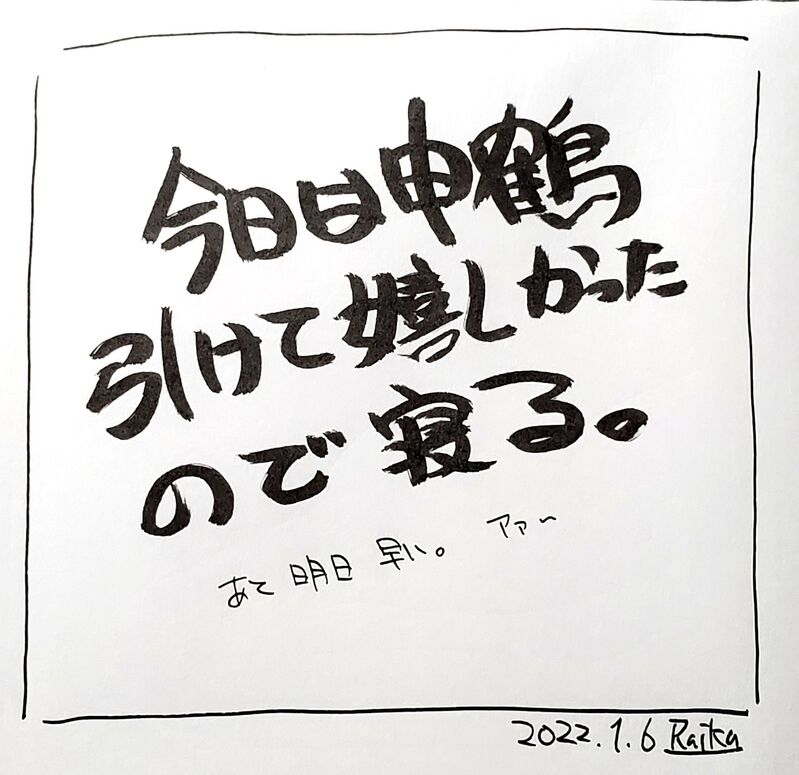 今日は申鶴
引けて嬉しかった
ので寝る。
あと 明日 早い。 アァ〜
2022.1.6 Raika